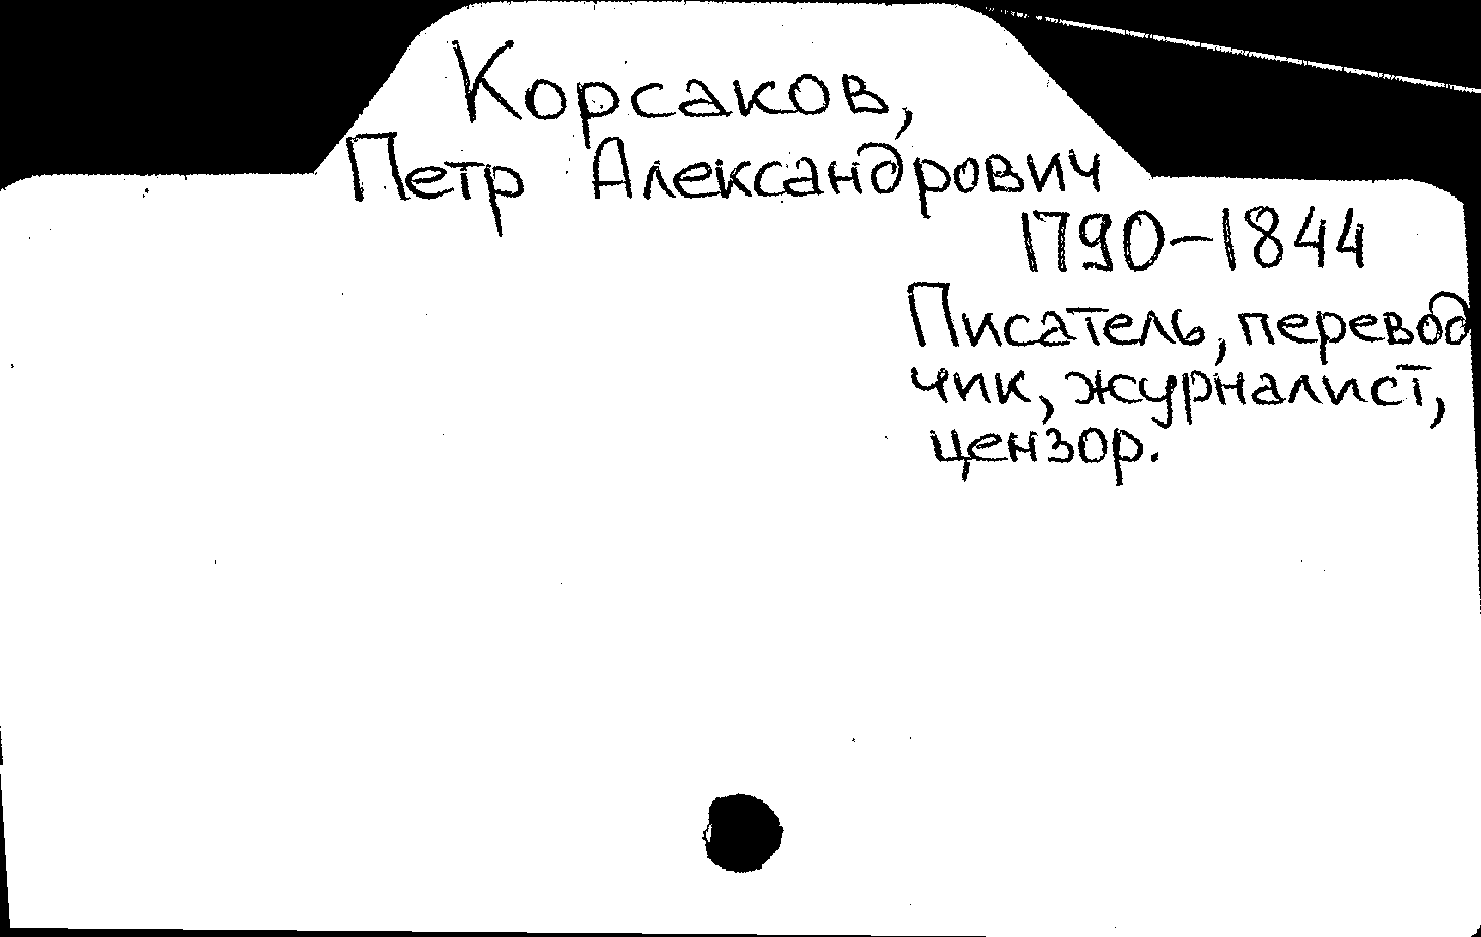 Корсаков,
Петр Александрович
1790-1844
Писатель, перевод
чик, журналист,
цензор.